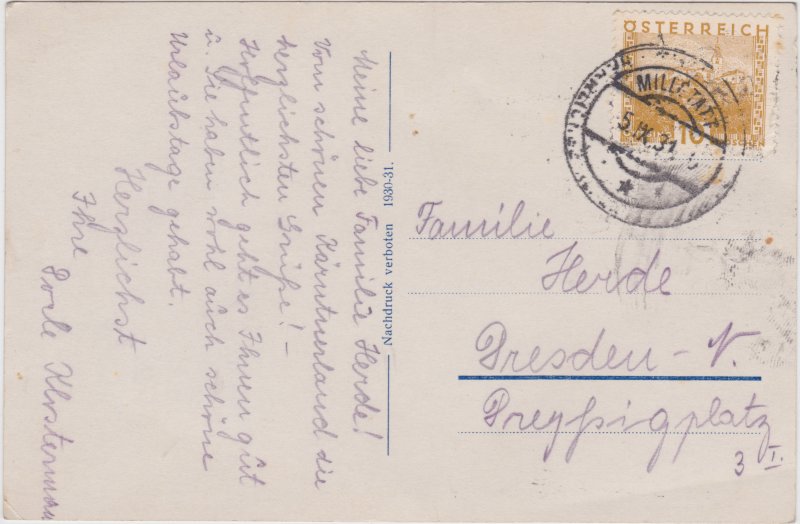 Meine liebe Familie Herde!
Vom schönen Kärntnerland die
herzlichsten Grüße! –
Hoffentlich geht es Ihnen gut
u. Sie haben wohl auch schöne
Urlaubstage gehabt.
Herzlichst
Ihre
Klosterman
Nachdruck verboten 1930-31.
ÖSTERREICH
10
GROSCHEN
MILLSTATT
5.IX.31
Familie
Herde
Dresden - N.
Dreyßigplatz
3 I.